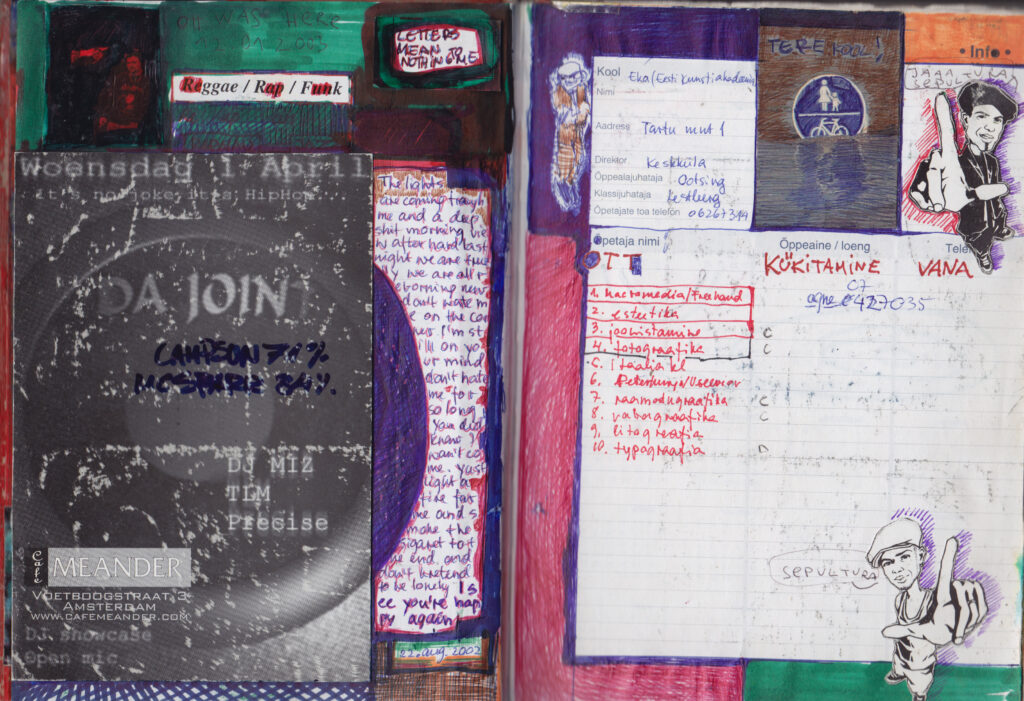 OTT WAS HERE
12.01.2003
LETTERS
MEAN TO
NOTHING ME
Reggae / Rap / Funk
Woensdag 1 April
it's no joke it's HipHop
DA JOINT
CAMPEON 71%
MOSPARIE 84%
DJ MIZ
TLM
Precise
Cafe
MEANDER
VOETBOOGSTRAAT 3
AMSTERDAM
WWW.CAFEMEANDER.COM
DJ showcase
Open mic
The lights
are coming trough
me and a deep
shit morning vie
w after hard last
night we are tru
ly we are all r
eborning new
don't wate m
e on the cor
ner I'm st
ill on yo
ur mind
don't hate
me for
so long
you did
know I
wan't co
me. Yust
light a
fire for
me and s
moke the
sigaret to t
he end and
don't pretend
to be lonely I s
ee you're hap
py again
22. aug. 2002
Kool Eka/Eesti Kunstiakadeemia
Nimi
Aadress Tartu mnt 1
Direktor Keskküla
Õppealajuhataja Ootsing
Klassijuhataja Kestberg
Õpetajate toa telefon 06267349
TERE KOOL!
• Info •
JAAA TURA
SEPULTURA
Õpetaja nimi Õppeaine / loeng Tele
OTT KÜKITAMINE VANA
07
agne 0427035
1. macromedia/Freehand
2. esteetika
3. joonistamine C
4. fotograafika C
5. itaalia kl
6.
7. raamatugraafika C
8. vabagraafika C
9. litograafia
10. typograafia D
SEPULTURA